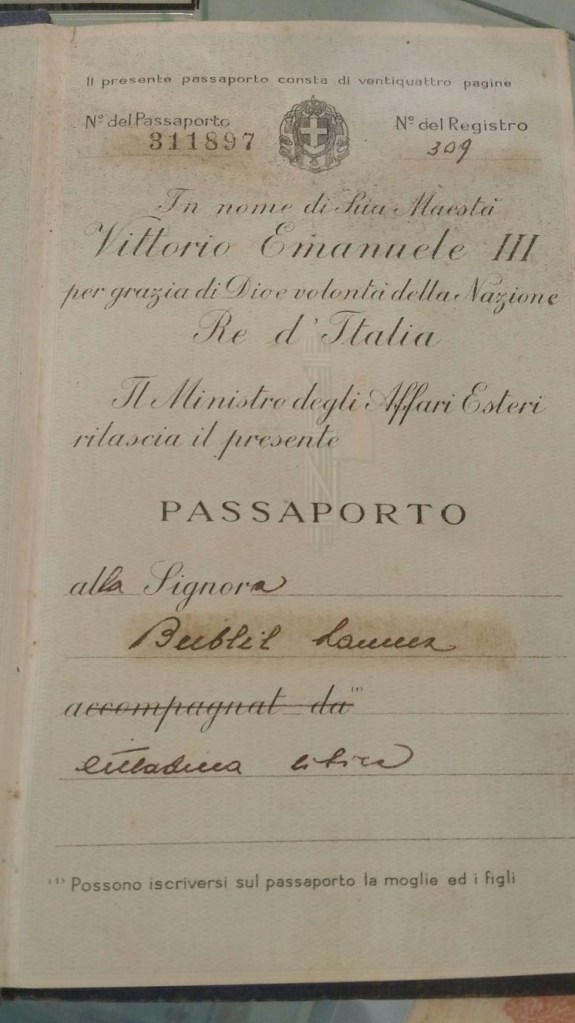 Il presente passaporto consta di ventiquattro pagine
N° del Passaporto
311897
N° del Registro
309
In nome di Sua Maestà
Vittorio Emanuele III
per grazia di Dio e volontà della Nazione
Re d'Italia
Il Ministro degli Affari Esteri
rilascia il presente
PASSAPORTO
alla Signora
Bublil
accompagnat da (1)
cittadina libica
(1) Possono iscriversi sul passaporto la moglie ed i figli